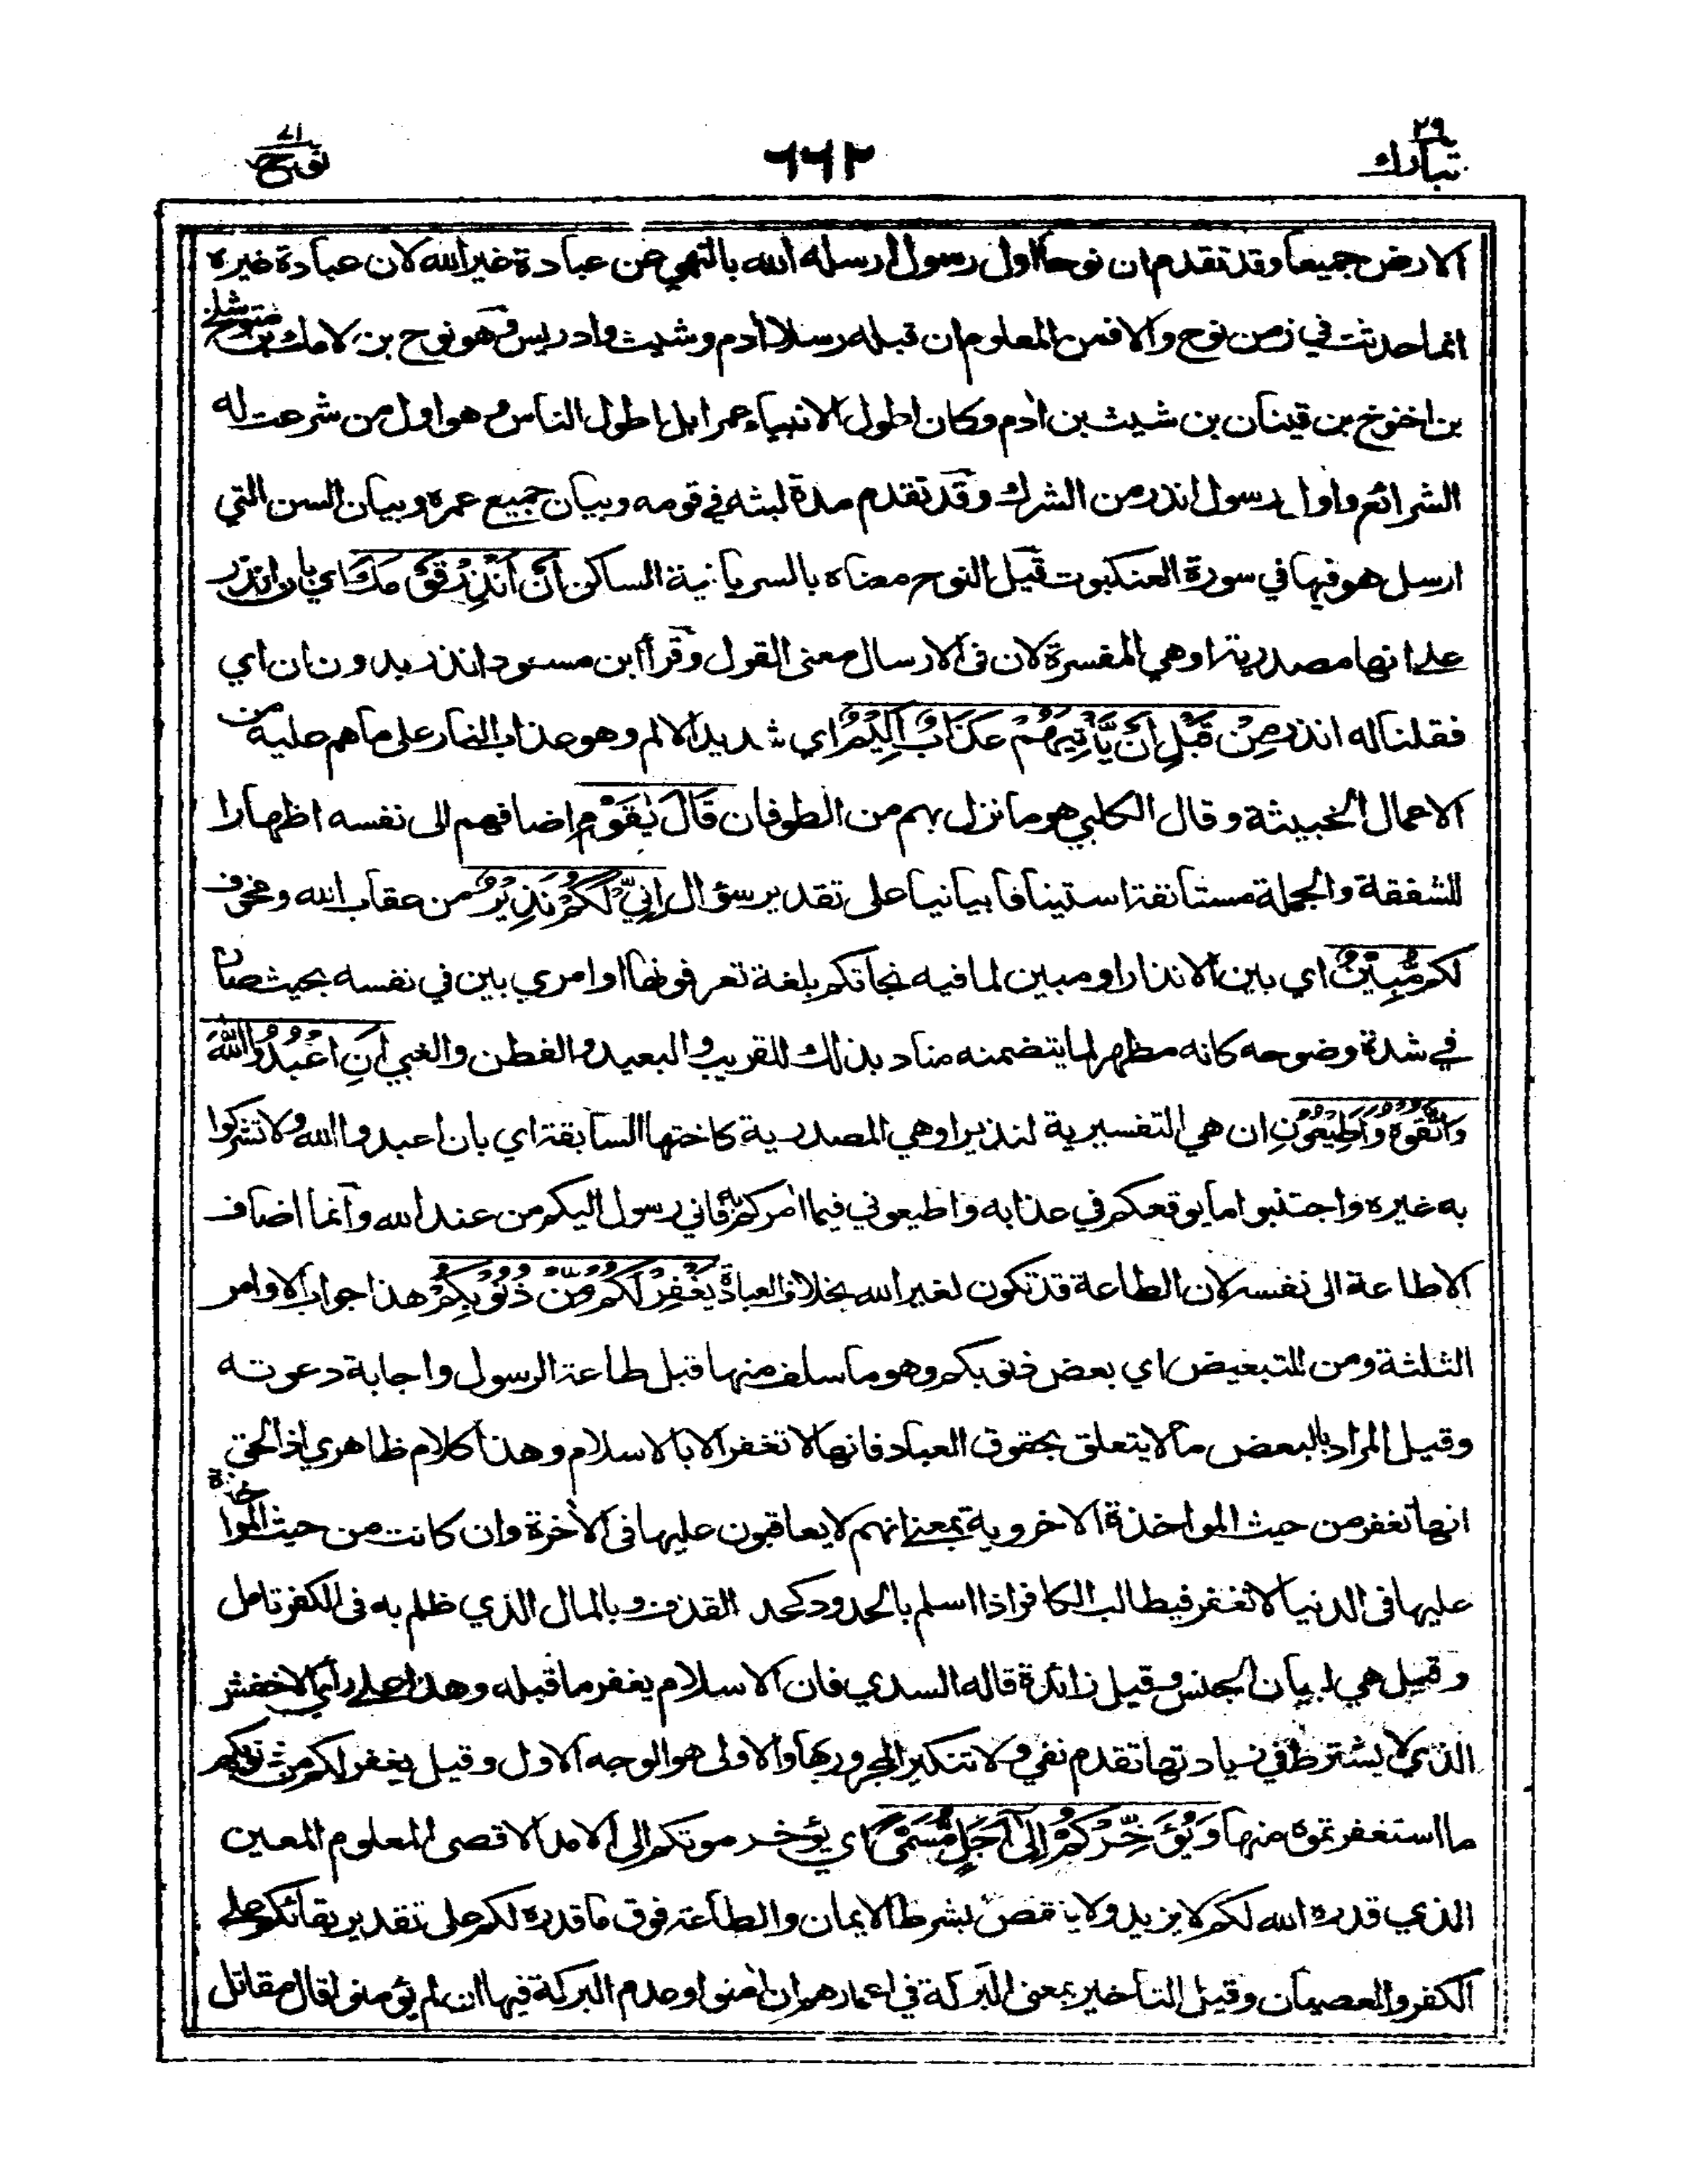 ٢٩
تبارك
٦٦٢
نوح ٧١
الارض جميعا وقد تقدم ان نوحا اول رسول ارسله الله بالنهي عن عبادة غير الله لان عبادة غيره
انما حدثت في زمن نوح والا فمن المعلوم ان قبله رسلا آدم وشيث وادريس وهو نوح بن لامك بن متوشلخ
بن اخنوخ بن قينان بن شيث بن آدم وكان اطول الانبياء عمرا بل اطول الناس وهو اول من شرعت له
الشرائع واول رسول انذر من الشرك وقد تقدم مدة لبثه في قومه وبيان جميع عمره وبيان السن التي
ارسل هو فيها في سورة العنكبوت قيل النوح معناه بالسريانية الساكن أَنْ أَنْذِرْ قَوْمَكَ اي بان انذر
على انها مصدرية او هي المفسرة لان فى الارسال معنى القول وقرأ ابن مسعود انذر بدون ان اي
فقلنا له انذر مِنْ قَبْلِ أَنْ يَّأْتِيَهُمْ عَذَابٌ أَلِيْمٌ اي شديد الالم وهو عذاب النار على ما هم عليه من
الاعمال الخبيثة وقال الكلبي هو ما نزل بهم من الطوفان قَالَ يٰقَوْمِ اضافهم الى نفسه اظهارا
للشفقة والجملة مستانفة استينافا بيانيا على تقدير سؤال اِنِّيْ لَكُمْ نَذِيْرٌ من عقاب الله ومخوف
لكم مُّبِيْنٌ اي بين الانذار او مبين لما فيه نجاتكم بلغة تعرفونها او امري بين في نفسه بحيث صار
في شدة وضوحه كانه مظهر لما يتضمنه مناد بذلك للقريب والبعيد والفطن والغبي اَنِ اعْبُدُوا اللّٰهَ
وَاتَّقُوْهُ وَاَطِيْعُوْنِ ان هي التفسيرية لنذير او هي المصدرية كاختها السابقة اي بان اعبدوا الله ولا تشركوا
به غيره واجتنبوا ما يوقعكم في عذابه واطيعوني فيما امركم به فاني رسول اليكم من عند الله وانما اضاف
الاطاعة الى نفسه لان الطاعة قد تكون لغير الله بخلاف العبادة يَغْفِرْ لَكُمْ مِّنْ ذُنُوْبِكُمْ هذا جواب الاوامر
الثلثة ومن للتبعيض اي بعض ذنوبكم وهو ما سلف منها قبل طاعة الرسول واجابة دعوته
وقيل المراد بالبعض ما لا يتعلق بحقوق العباد فانها لا تغفر الا بالاسلام وهذا كلام ظاهري اذ الحق
انها تغفر من حيث المواخذة الاخروية بمعنى انهم لا يعاقبون عليها فى الآخرة وان كانت من حيث المواخذة
عليها فى الدنيا لا تغفر فيطالب الكافر اذا اسلم بالحدود كحد القذف وبالمال الذي ظلم به فى الكفر تامل
وقيل هي لبيان الجنس وقيل زائدة قاله السدي فان الاسلام يغفر ما قبله وهذا على رأي الاخفش
الذي لا يشترط في زيادتها تقدم نفي ولا تنكير المجرور بها والاولى هو الوجه الاول وقيل يغفر لكم من ذنوبكم
ما استغفرتموه منها وَيُؤَخِّرْكُمْ اِلٰۤى اَجَلٍ مُّسَمًّى اي يؤخر موتكم الى الامد الاقصى المعلوم المعين
الذي قدره الله لكم لا يزيد ولا ينقص بشرط الايمان والطاعة فوق ما قدره لكم على تقدير بقائكم على
الكفر والعصيان وقيل التاخير بمعنى البركة في اعمارهم ان آمنوا وعدم البركة فيها ان لم يؤمنوا قال مقاتل